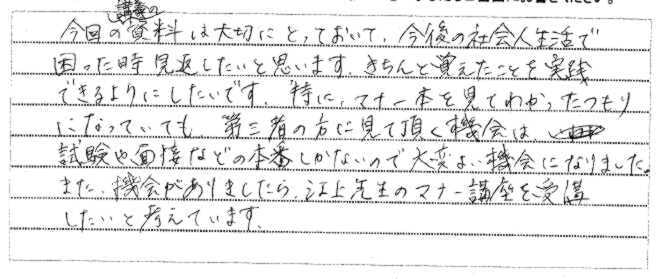 今回の講義の資料は大切にとっておいて、今後の社会人生活で
困った時見返したいと思います。きちんと覚えたことを実践
できるようにしたいです。特に、マナー本を見てわかったつもり
になっていても、第三者の方に見て頂く機会は、
試験や面接などの本番しかないので大変よい機会になりました。
また、機会がありましたら、江上先生のマナー講座を受講
したいと考えています。